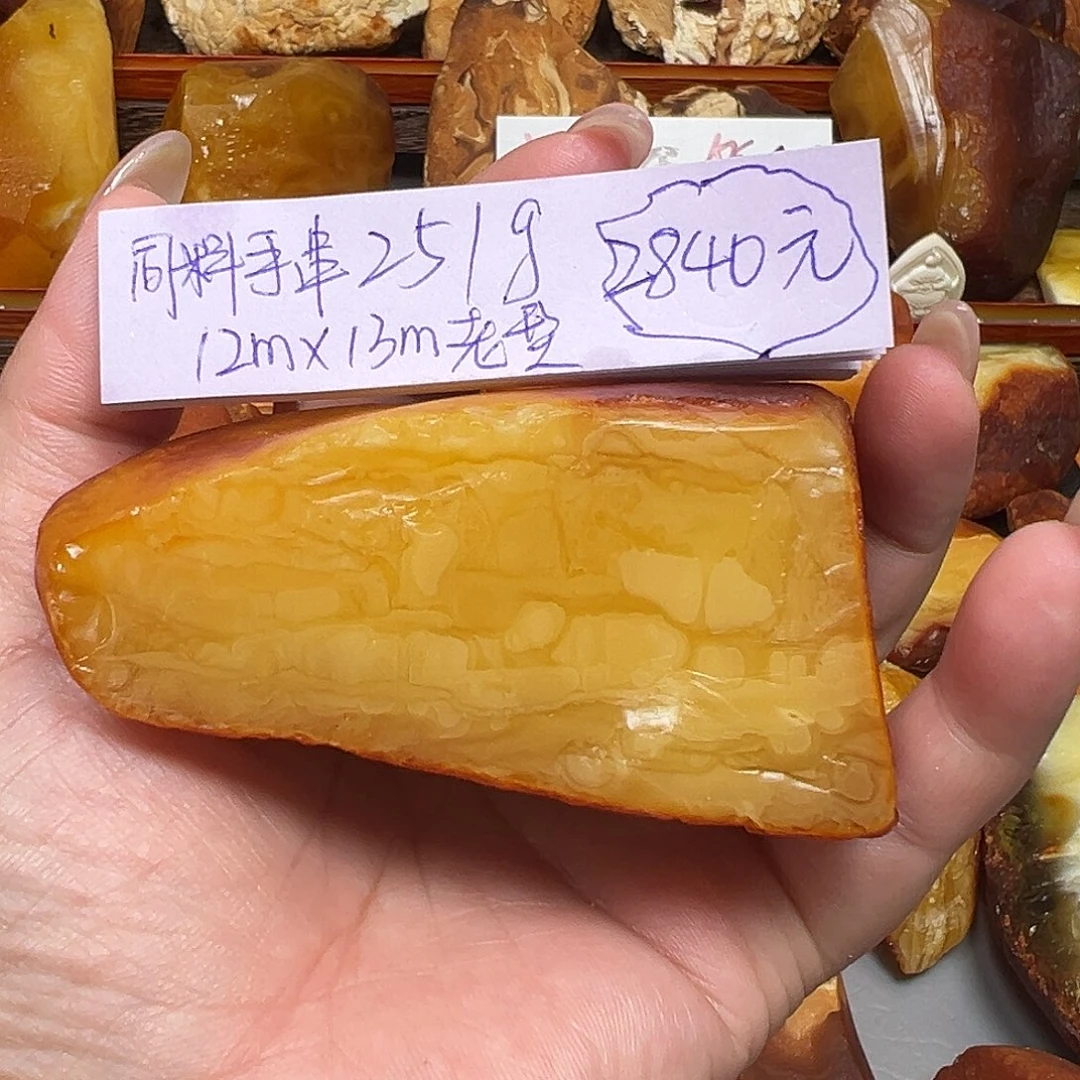 同料手串251g 2840元
12mx13m老型